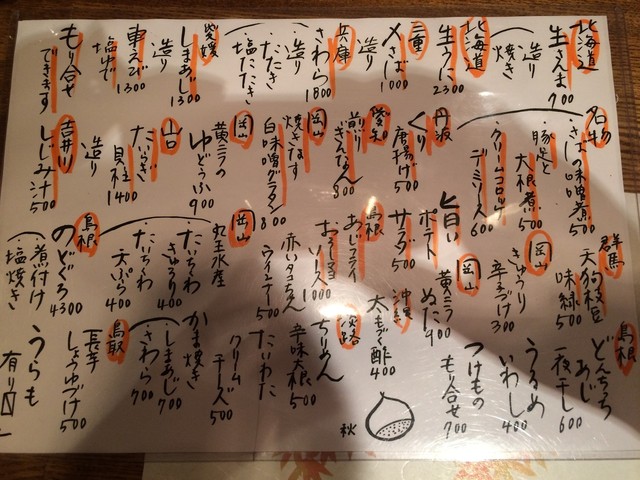 北海道
生さんま 700
造り
焼き
北海道
生うに 2300
三重
〆さば 1000
造り
兵庫
さわら 1800
造り
たたき
塩たたき
愛媛
しまあじ 1300
造り
車えび 1300
塩ゆで
もり合せ
できます
名物
さばの味噌煮 500
豚足と
大根煮 500
クリームコロッケ
デミソース 600
丹波
くり
唐揚げ 500
愛知
煎りぎんなん 300
岡山
焼きなす
白味噌グラタン 800
岡山
黄ニラの
ゆどうふ 900
山口
たいらぎ
貝柱 1400
造り
吉井川
しじみ汁 500
群馬
天狗枝豆
味緑 500
岡山
きゅうり
辛子づけ 300
岡山
黄ニラ
ぬた 900
旨い
ポテト
サラダ 500
沖縄
太もづく酢 400
島根
あじフライ
おろしポン
ソース 1000
赤いタコちゃん
ウインナー 500
岡山
丸王水産
たいちくわ
きゅうり 400
たいちくわ
天ぷら 400
島根
のどぐろ 4300
煮付け
塩焼き
島根
どんちっち
あじ
一夜干し 600
うるめ
いわし 400
つけもの
もり合せ 700
秋
淡路
ちりめん
辛味大根 500
たいわた
クリーム
チーズ 500
かま焼き
しまあじ 700
さわら 700
鳥取
長芋
しょうゆづけ 500
うらも
有り〼